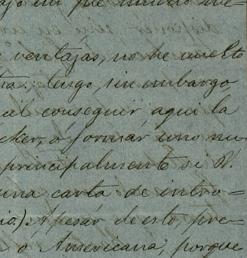 ventajas, no he vuelto
tengo, sin embargo
al conseguir aquí la
cker, o formar uno nu=
principalmente si N.
una carta de intro=
A pesar de esto, pre=
o Americana, porque